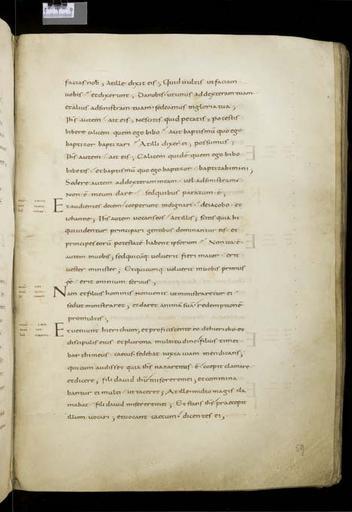 facias nobis; At ille dixit eis; Quid vultis ut faciam
vobis et dixerunt; Da nobis ut unus ad dexteram tuam
et alius ad sinistram tuam sedeamus in gloria tua;
Ihs autem ait eis; Nescitis quid petatis; potestis
bibere calicem quem ego bibo aut baptismum quo ego
baptizor baptizari; At illi dixer ei; possumus;
Ihs autem ait eis; Calicem quidem quem ego bibo
bibetis et baptismum quo ego baptizor baptizabimini;
Sedere autem ad dexteram meam vel ad sinistram
Non est meum dare sed quibus paratum est;
Et audientes decem coeperunt indignari de iacobo et
iohanne; Ihs autem vocans eos ait illis; scitis quia hi
qui videntur principari gentibus dominantur eis et
principes eorum potestate habent ipsorum Non ita est
autem in vobis; sed quicumq; voluerit fieri maior erit
vester minister; Et quicumq; voluerit in vobis primus
esse erit omnium servus;
Nam et filius hominis non venit ut ministraretur ei
sed ut ministraret; et daret animam suam redemptione
pro multis;
Et veniunt hierichum; et proficiscente eo de hiericho et
discipulis eius et plurima multitudine filius timei
bar thimeus caecus sedebat iuxta viam mendicans;
qui cum audisset quia ihs nazarenus est coepit clamare
et dicere; fili david ihu miserere mei; et commina
bantur ei multi ut taceret; At ille multo magis cla
mabat fili david miserere mei; Et stans ihs praecepit
illum vocari; et vocant caecum dicentes ei;
59